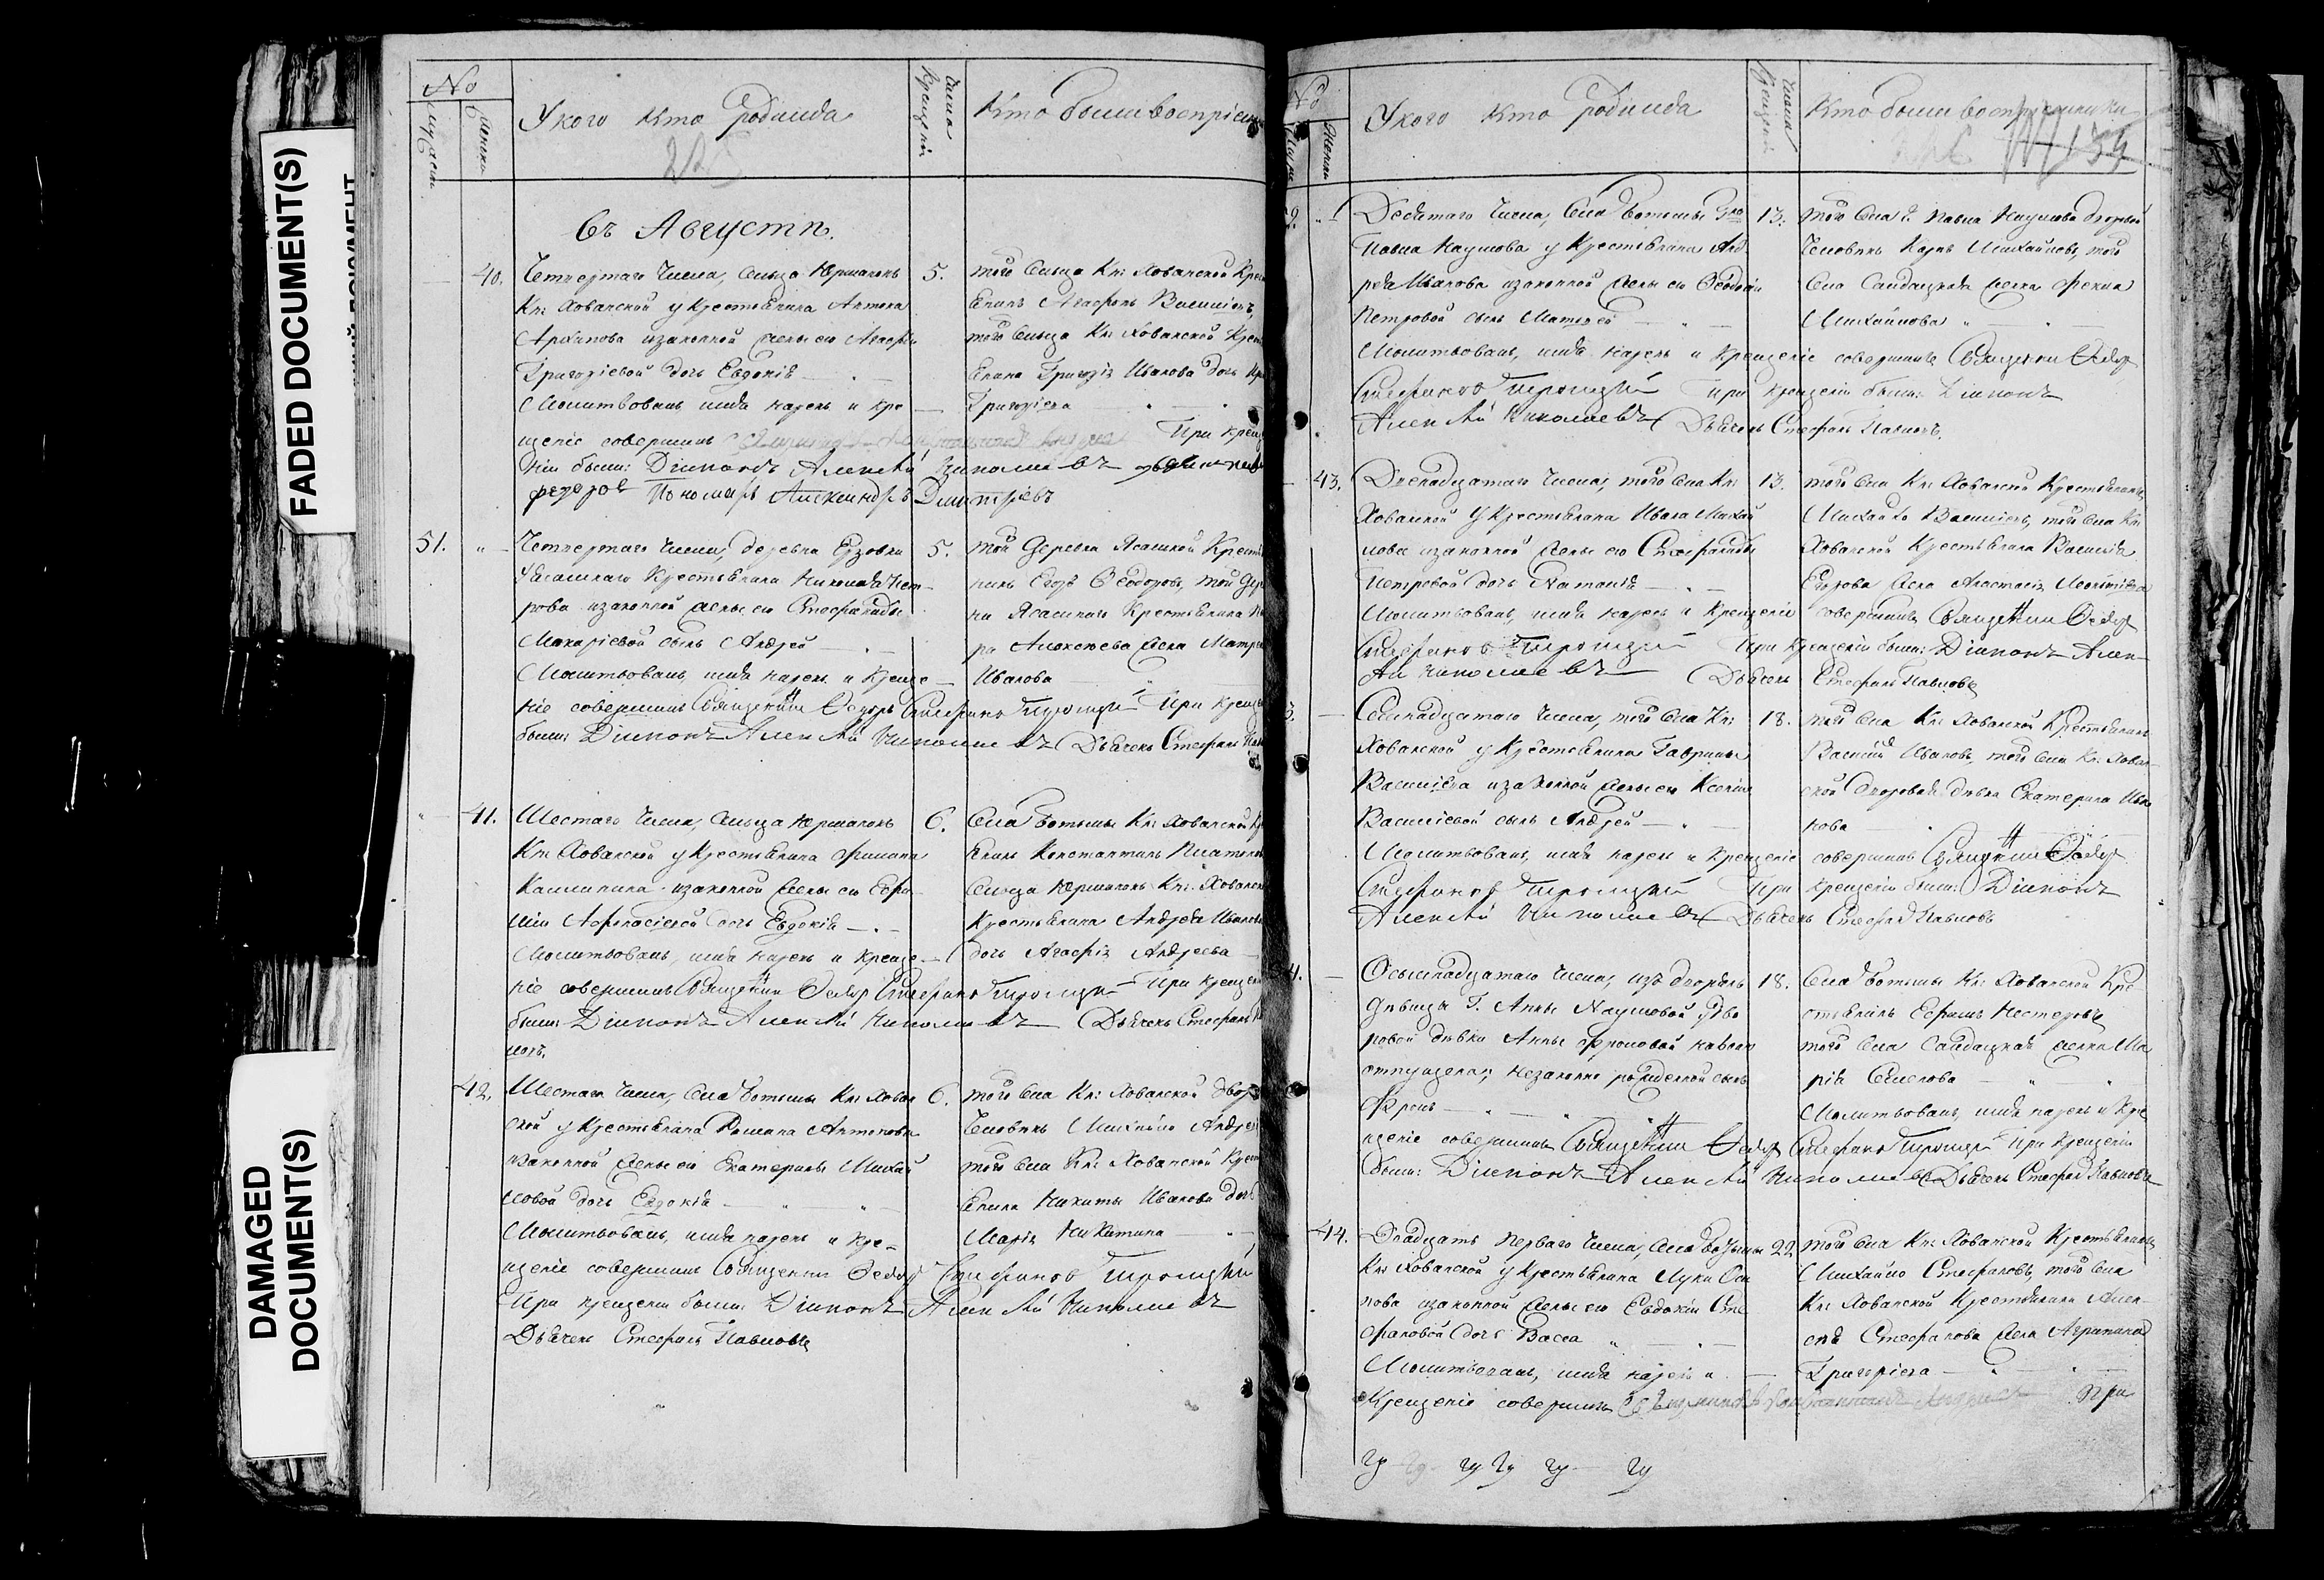 FADED DOCUMENT(S)
DAMAGED
DOCUMENT(S)
№
У кого кто родился
Числа Крещенія
Кто были воспріем
Въ Августѣ.
40. Четвертаго числа, сельца Юрманокъ 5.
Кн: Хованской у крестьянина Антона
Архипова изаконной жены его Агафьи
Григоріевой дочь Евдокія
Молитвовалъ, имя нарекъ и кре
щеніе совершилъ
При крещ
ніи были: Діаконъ Алексѣй Николаевъ
Пономарь Александръ Димитріевъ
того сельца Кн: Хованской Кре
янинъ Агафонъ Василіевъ,
того сельца Кн: Хованской Крес
янина Григорія Иванова дочь
Григоріева
51. Четвертаго числа, деревни Ерзовки 5.
крестьянина Николая Пет
рова изаконной жены его Стефаниды
Макаріевой сынъ Андрей
Молитвовалъ, имя нарекъ и креще
ніе совершилъ Священникъ Ѳедоръ Стефановъ Троицкій При креще
были: Діаконъ Алексѣй Николаевъ Дьячекъ Стефанъ
той деревни Ясашной Кресть
нинъ Егоръ Ѳеодоровъ, той дер
ни Ясашнаго Крестьянина
ра Алексѣева жена Матре
Иванова
41. Шестаго числа, сельца Юрманокъ 6.
Кн: Хованской у крестьянина Филипа
Калинина изаконной жены его Евфи
міи Афанасіевой дочь Евдокія
Молитвовалъ, имя нарекъ и креще
ніе совершилъ Священникъ Ѳедоръ Стефановъ Троицкій При креще
были: Діаконъ Алексѣй Николаевъ Дьячекъ Стефанъ
ловъ.
Села Ботьмы Кн: Хованской Кр
янинъ Константинъ Платонов
сельца Юрманокъ Кн: Хованск
крестьянина Андрея Иванова
дочь Агафія Андреева
42. Шестаго числа, села Ботьмы Кн: Хован 6.
ской у крестьянина Романа Антонова
изаконной жены его Екатерины Михай
ловой дочь Евдокія
Молитвовалъ, имя нарекъ и кре
щеніе совершилъ Священникъ Ѳедоръ Стефановъ Троицкій
При крещеніи были: Діаконъ Алексѣй Николаевъ
Дьячекъ Стефанъ Павловъ
того села Кн: Хованской двор
человѣкъ Михайло Андре
того села Кн: Хованской Крест
янина Никиты Иванова дочь
Марія Никитина
№
У кого кто родился
Числа Крещенія
Кто были воспріемники
134
2. Десятаго числа, села Ботьмы Гна 13.
Павла Наумова у крестьянина Анд
рея Иванова изаконной жены его Ѳеодосіи
Петровой сынъ Матвей
Молитвовалъ, имя нарекъ и крещеніе совершилъ Священникъ Ѳедоръ
Стефановъ Троицкій при крещеніи были: Діаконъ
Алексѣй Николаевъ Дьячекъ Стефанъ Павловъ.
того села Г. Павла Наумова дворовой
человѣкъ Карпъ Михайловъ, того
села Салдацкая жена Фекла
Михайлова
43. Двенадцатаго числа, того села Кн: 13.
Хованской у крестьянина Ивана Михай
лова изаконной жены его Стефаниды
Петровой дочь Наталія
Молитвовалъ, имя нарекъ и крещеніе совершилъ Священникъ Ѳедоръ
Стефановъ Троицкій При крещеніи были: Діаконъ Алек
ѣй Николаевъ Дьячекъ Стефанъ Павловъ
того села Кн: Хованской Крестьянинъ
Михайло Василіевъ, того села Кн:
Хованской Крестьянина Василія
Егорова жена Анастасія Леонтіева
3. Семнадцатаго числа, того села Кн: 18.
Хованской у крестьянина Гаврилы
Василіева изаконной жены его Ксеніи
Василіевой сынъ Андрей
Молитвовалъ, имя нарекъ и крещеніе совершилъ Священникъ Ѳедоръ
Стефановъ Троицкій При крещеніи были: Діаконъ
Алексѣй Николаевъ Дьячекъ Стефанъ Павловъ
того села Кн: Хованской Крестьянинъ
Василій Ивановъ, того села Кн: Хован
ской дворовая дѣвка Екатерина Ива
нова
4. Осьмнадцатаго числа, изъ дворянъ 18.
дѣвицы Г. Анны Наумовой у дво
ровой дѣвки Анны Фроловой на волю
отпущеная, незаконно рожденной сынъ
Фролъ
Молитвовалъ, имя нарекъ и кре
щеніе совершилъ Священникъ Ѳедоръ Стефановъ Троицкій При крещеніи
были: Діаконъ Алексѣй Николаевъ Дьячекъ Стефанъ Павловъ
Села Ботьмы Кн: Хованской Кре
стьянинъ Ефимъ Нестеровъ
того села Салдацкая жена Ма
рія Семенова
44. Двадцать перваго числа, села Ботьмы 22.
Кн: Хованской у крестьянина Луки Оси
пова изаконной жены его Евдокіи Сте
фановой дочь Васса
Молитвовалъ, имя нарекъ и
крещеніе совершилъ
При
того села Кн: Хованской Крестьянинъ
Михайло Стефановъ, того села
Кн: Хованской Крестьянина Алек
сѣя Стефанова жена Агрипина
Григоріева